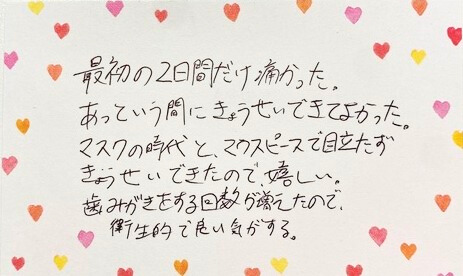 最初の2日間だけ痛かった。
あっていう間にきょうせいできてよかった。
マスクの時代と、マウスピースで目立たず
きょうせいできたので、嬉しい。
歯みがきをする回数が増えたので、
衛生的で良い気がする。